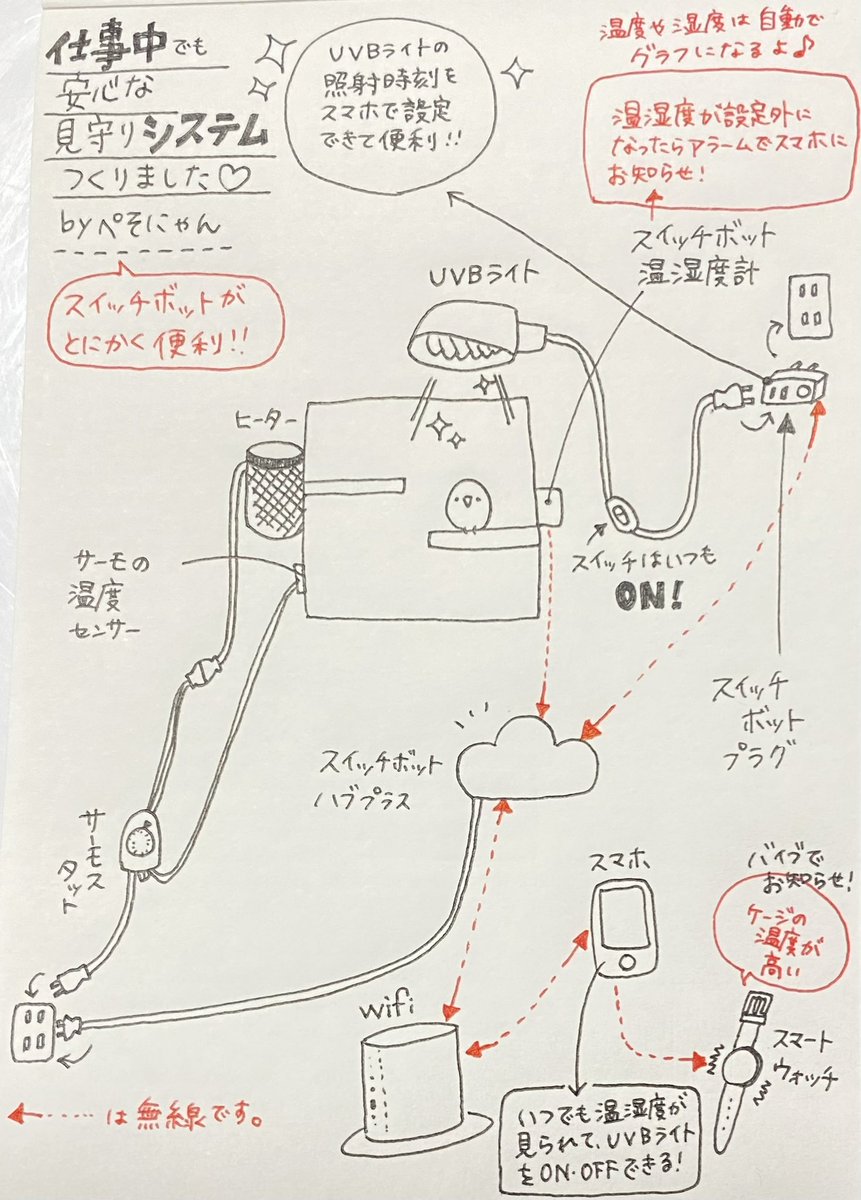 仕事中でも
安心な
見守りシステム
つくりました♡
byぺそにゃん
スイッチボットが
とにかく便利!!
UVBライトの
照射時刻を
スマホで設定
できて便利!!
温度や湿度は自動で
グラフになるよ♪
温湿度が設定外に
なったらアラームでスマホに
お知らせ!
スイッチボット
温湿度計
UVBライト
ヒーター
サーモの
温度
センサー
スイッチはいつも
ON!
スイッチ
ボット
プラグ
スイッチボット
ハブプラス
サーモス
タット
スマホ
バイブで
お知らせ!
ケージの
温度が
高い
wifi
スマート
ウォッチ
いつでも温湿度が
見られて、UVBライト
をON・OFFできる!
は無線です。